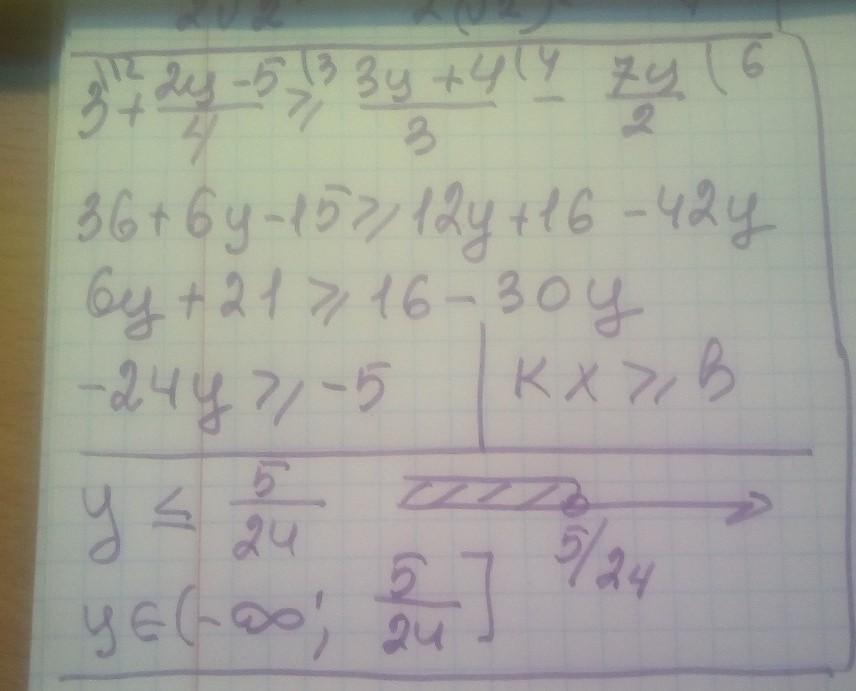 3 |12 + 2y-5/4 |3 ≥ 3y+4/3 |4 - 7y/2 |6
36+6y-15≥12y+16-42y
6y+21≥16-30y
-24y≥-5 | Kx≥B
y≤5/24
5/24
y∈(-∞; 5/24]